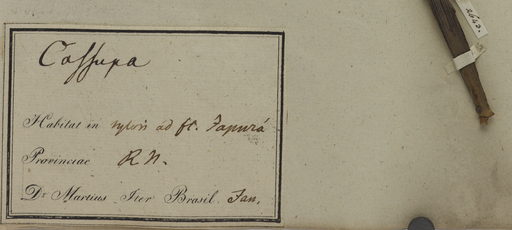 Cossupa
Habitat in sylvis ad fl. Japurá
Provinciae R. N.
Dr. Martius Iter Brasil. Jan.
2643.